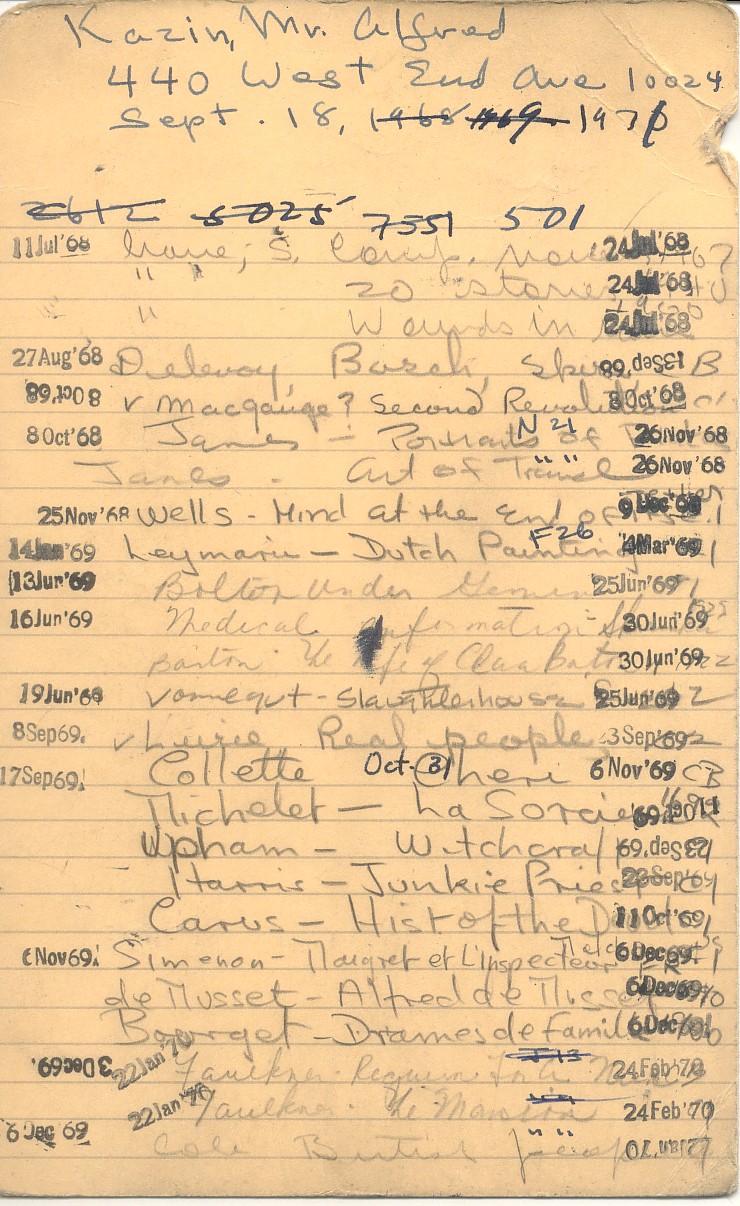 Kazin, Mr. Alfred
440 West End Ave 10024
Sept. 18, 1968 1969 1970
5025 7551 501
11 Jul '68 S. 24 Jul '68
" 20 stories 24 Jul '68
" Wounds in 24 Jul '68
27 Aug '68 Delevoy, Bosch, 13 Sep '68 B
8 Oct '68 v Macgauge? Second Revolution 8 Oct '68
8 Oct '68 James - Portraits of N 21 26 Nov '68
James - Art of Travel " " 26 Nov '68
25 Nov '68 Wells - Mind at the End of 9 Dec '68
14 Jan '69 Leymarie - Dutch Painting F26 4 Mar '69
13 Jun '69 Bolton Under Gemini 25 Jun '69
16 Jun '69 Medical Information 30 Jun '69
Barton. The Life of Clara Barton 30 Jun '69
19 Jun '69 Vonnegut - Slaughterhouse 25 Jun '69
8 Sep 69. v Lurie Real people 23 Sep '69
17 Sep 69. Collette Oct. 31 Cheri 6 Nov '69 CB
Michelet - La Sorciere 11 Oct '69
Upham - Witchcraft 23 Sep '69
Harris - Junkie Priest 23 Sep '69
Carus - Hist of the Devil 11 Oct '69
6 Nov 69. Simenon - Maigret et L'inspecteur 6 Dec 69.
de Musset - Alfred de Musset 6 Dec 69
Bourget - Drames de Famille 6 Dec 69
3 Dec 69. 22 Jan '70 Faulkner. Requiem for a Nun 24 Feb '70
22 Jan '70 Faulkner. The Mansion 24 Feb '70
6 Dec 69 Cole British " " 22 Jan '70